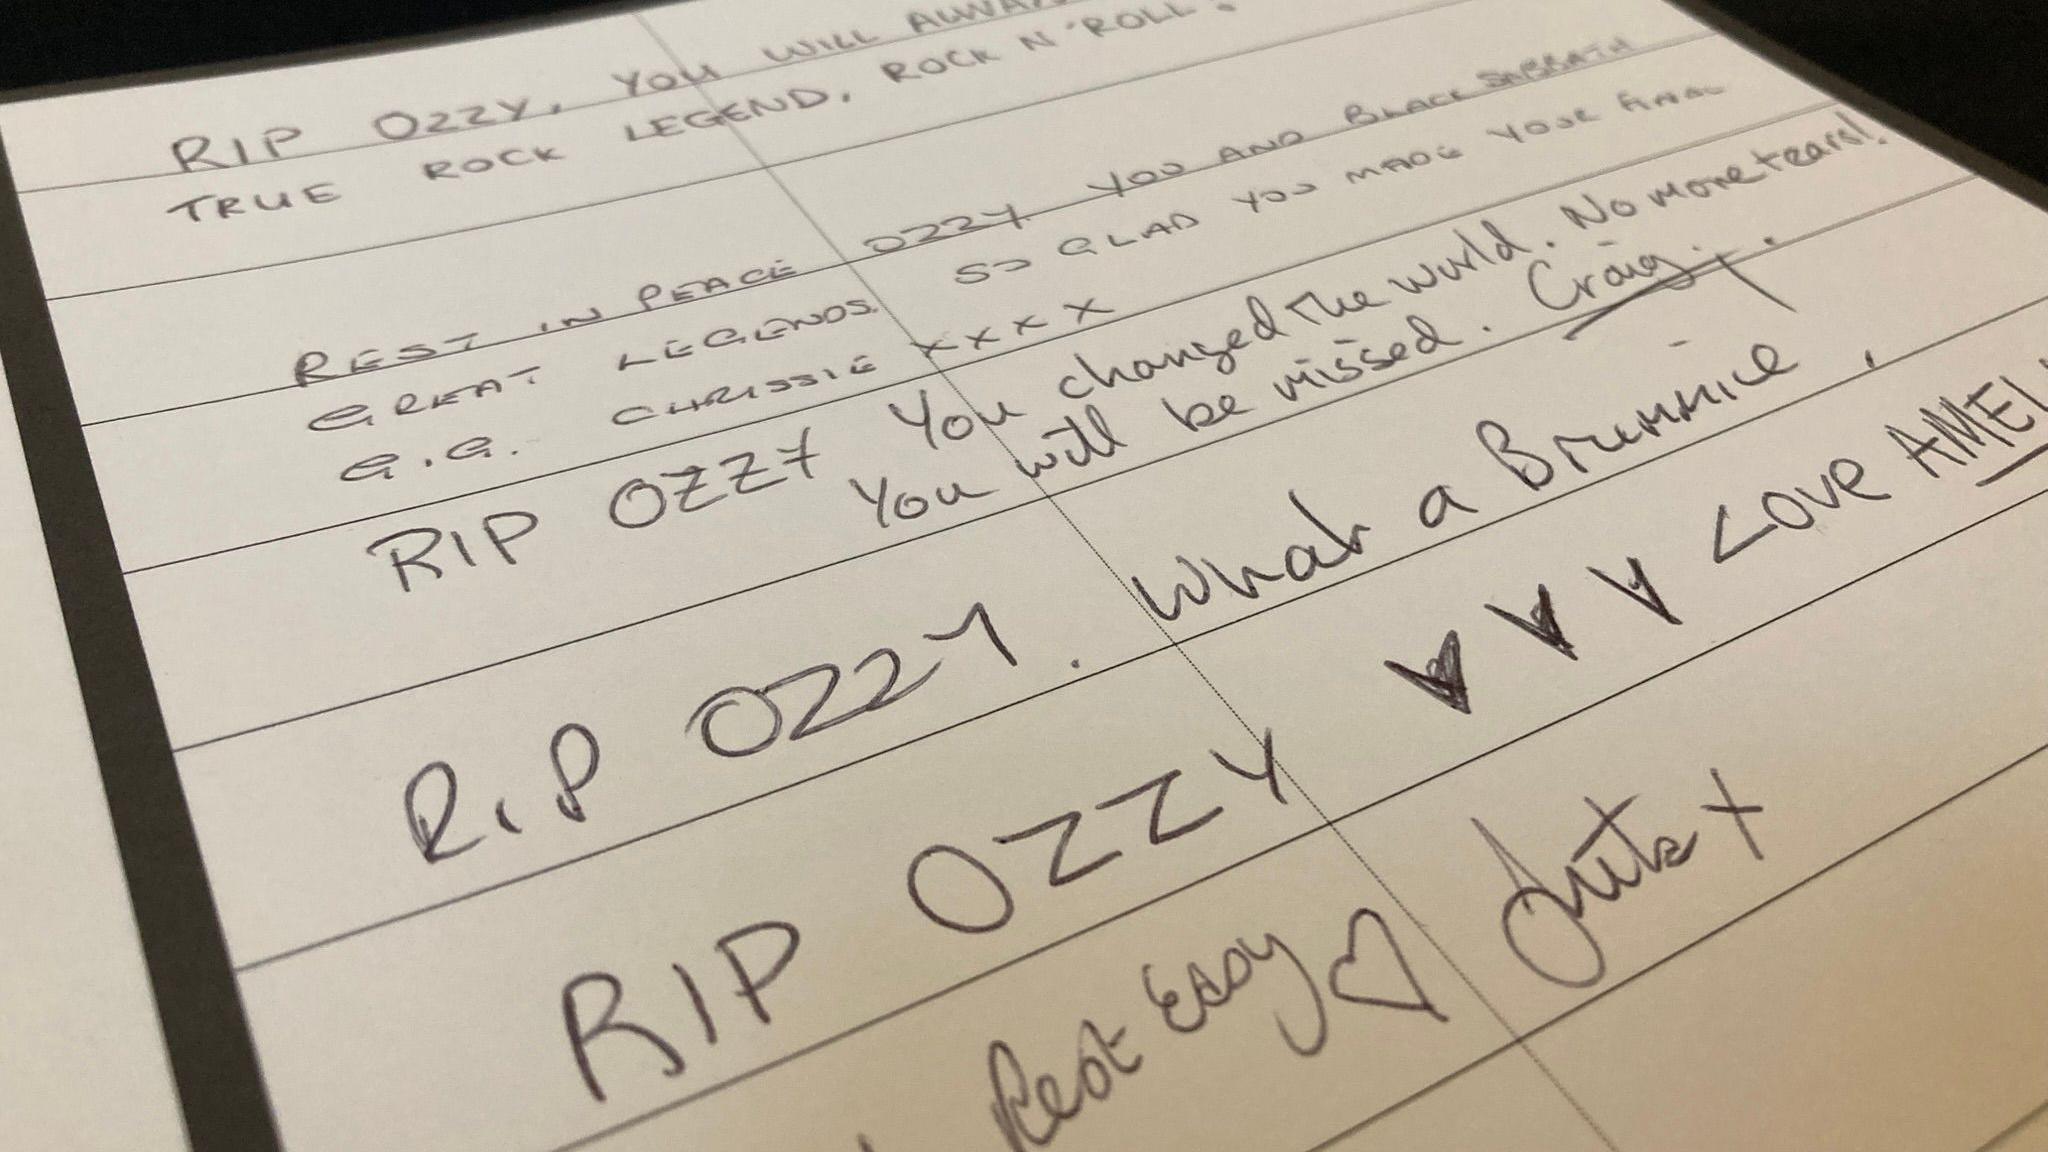 RIP OZZY, YOU WILL ALWAYS
TRUE ROCK LEGEND, ROCK N'ROLL.
REST IN PEACE OZZY YOU AND BLACK SABBATH
GREAT LEGENDS. SO GLAD YOU MADE YOUR FINAL
G.G. CHRISSIE XXXX
RIP OZZY You changed the world. No more tears!
You will be missed. Craig.
RIP OZZY. What a Brummie.
RIP OZZY ♥♥♥ LOVE AMEL
Rest EASY ♡